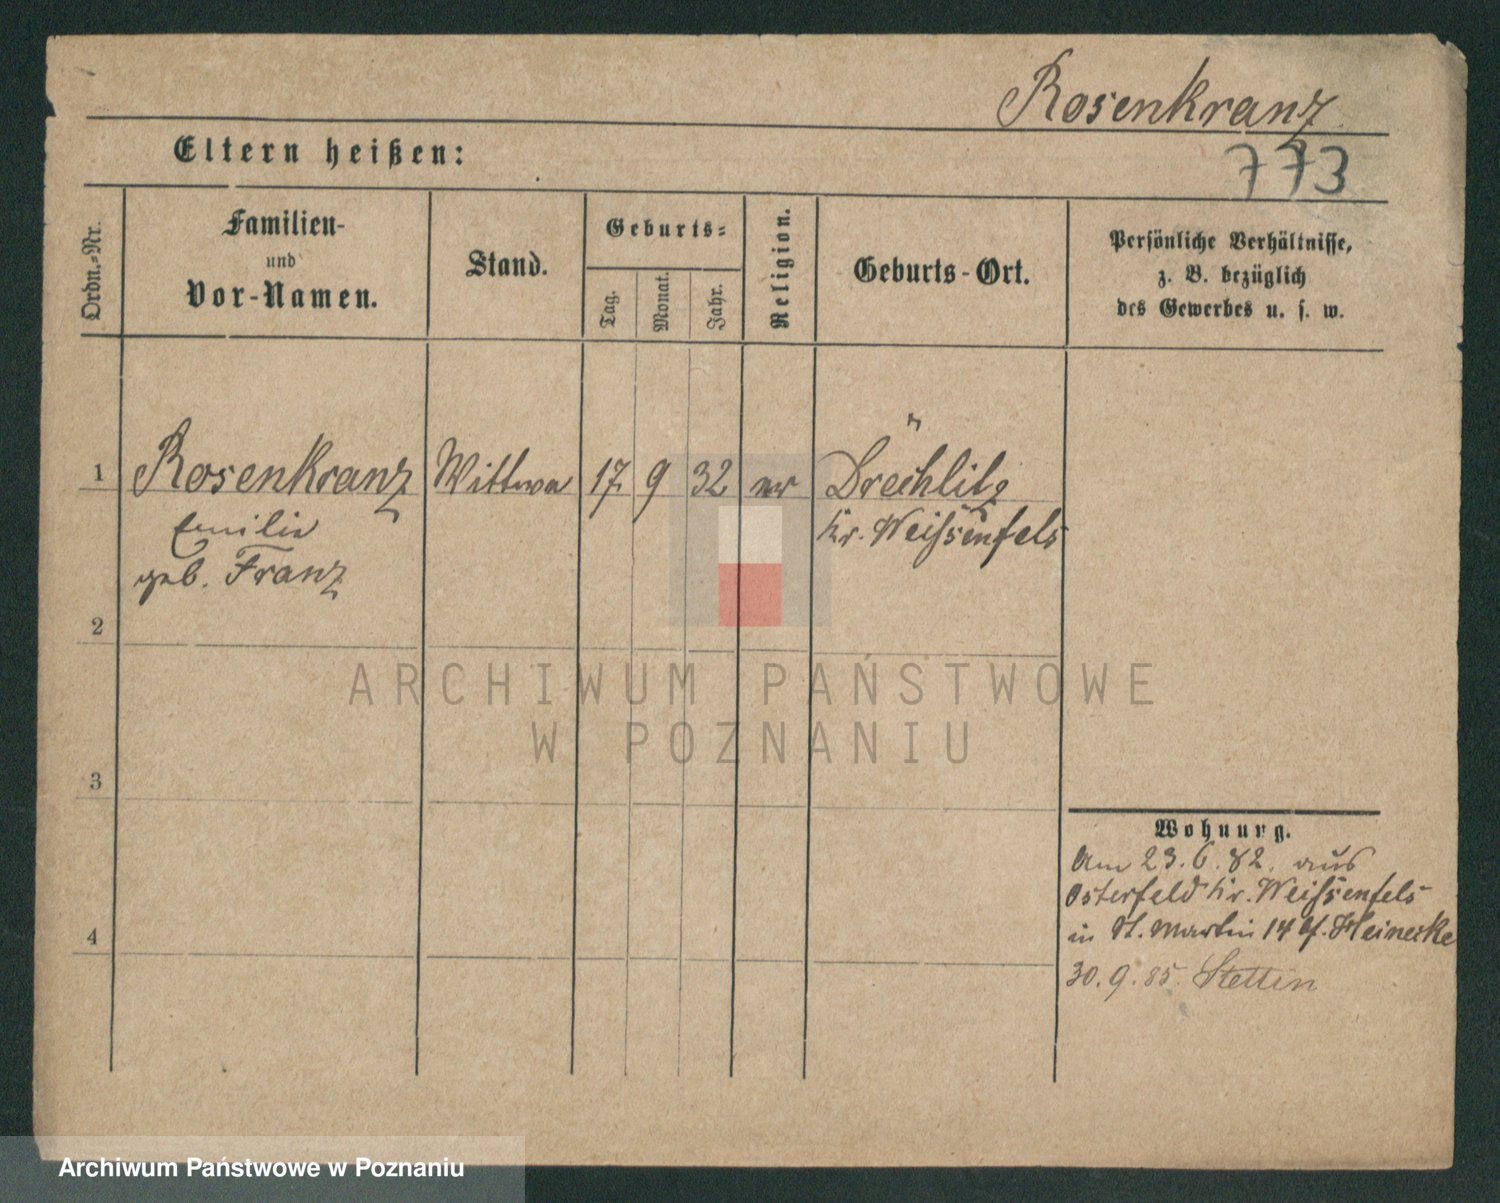 Rosenkranz
773
Eltern heißen:
Ordn.-Nr.
Familien-
und
Vor-Namen.
Stand.
Geburts-
Tag.
Monat.
Jahr.
Religion.
Geburts-Ort.
Persönliche Verhältnisse,
z. B. bezüglich
des Gewerbes u. s. w.
1 Rosenkranz Wittwe 17 9 32 ev
Emilie Kr. Weißenfels
geb. Franz
2
3
4
Wohnung.
Am 23.6.82. aus
Osterfeld Kr. Weißenfels
in St. Martin 14 Heinecke
30.9.85. Stettin
ARCHIWUM PAŃSTWOWE
W POZNANIU
Archiwum Państwowe w Poznaniu